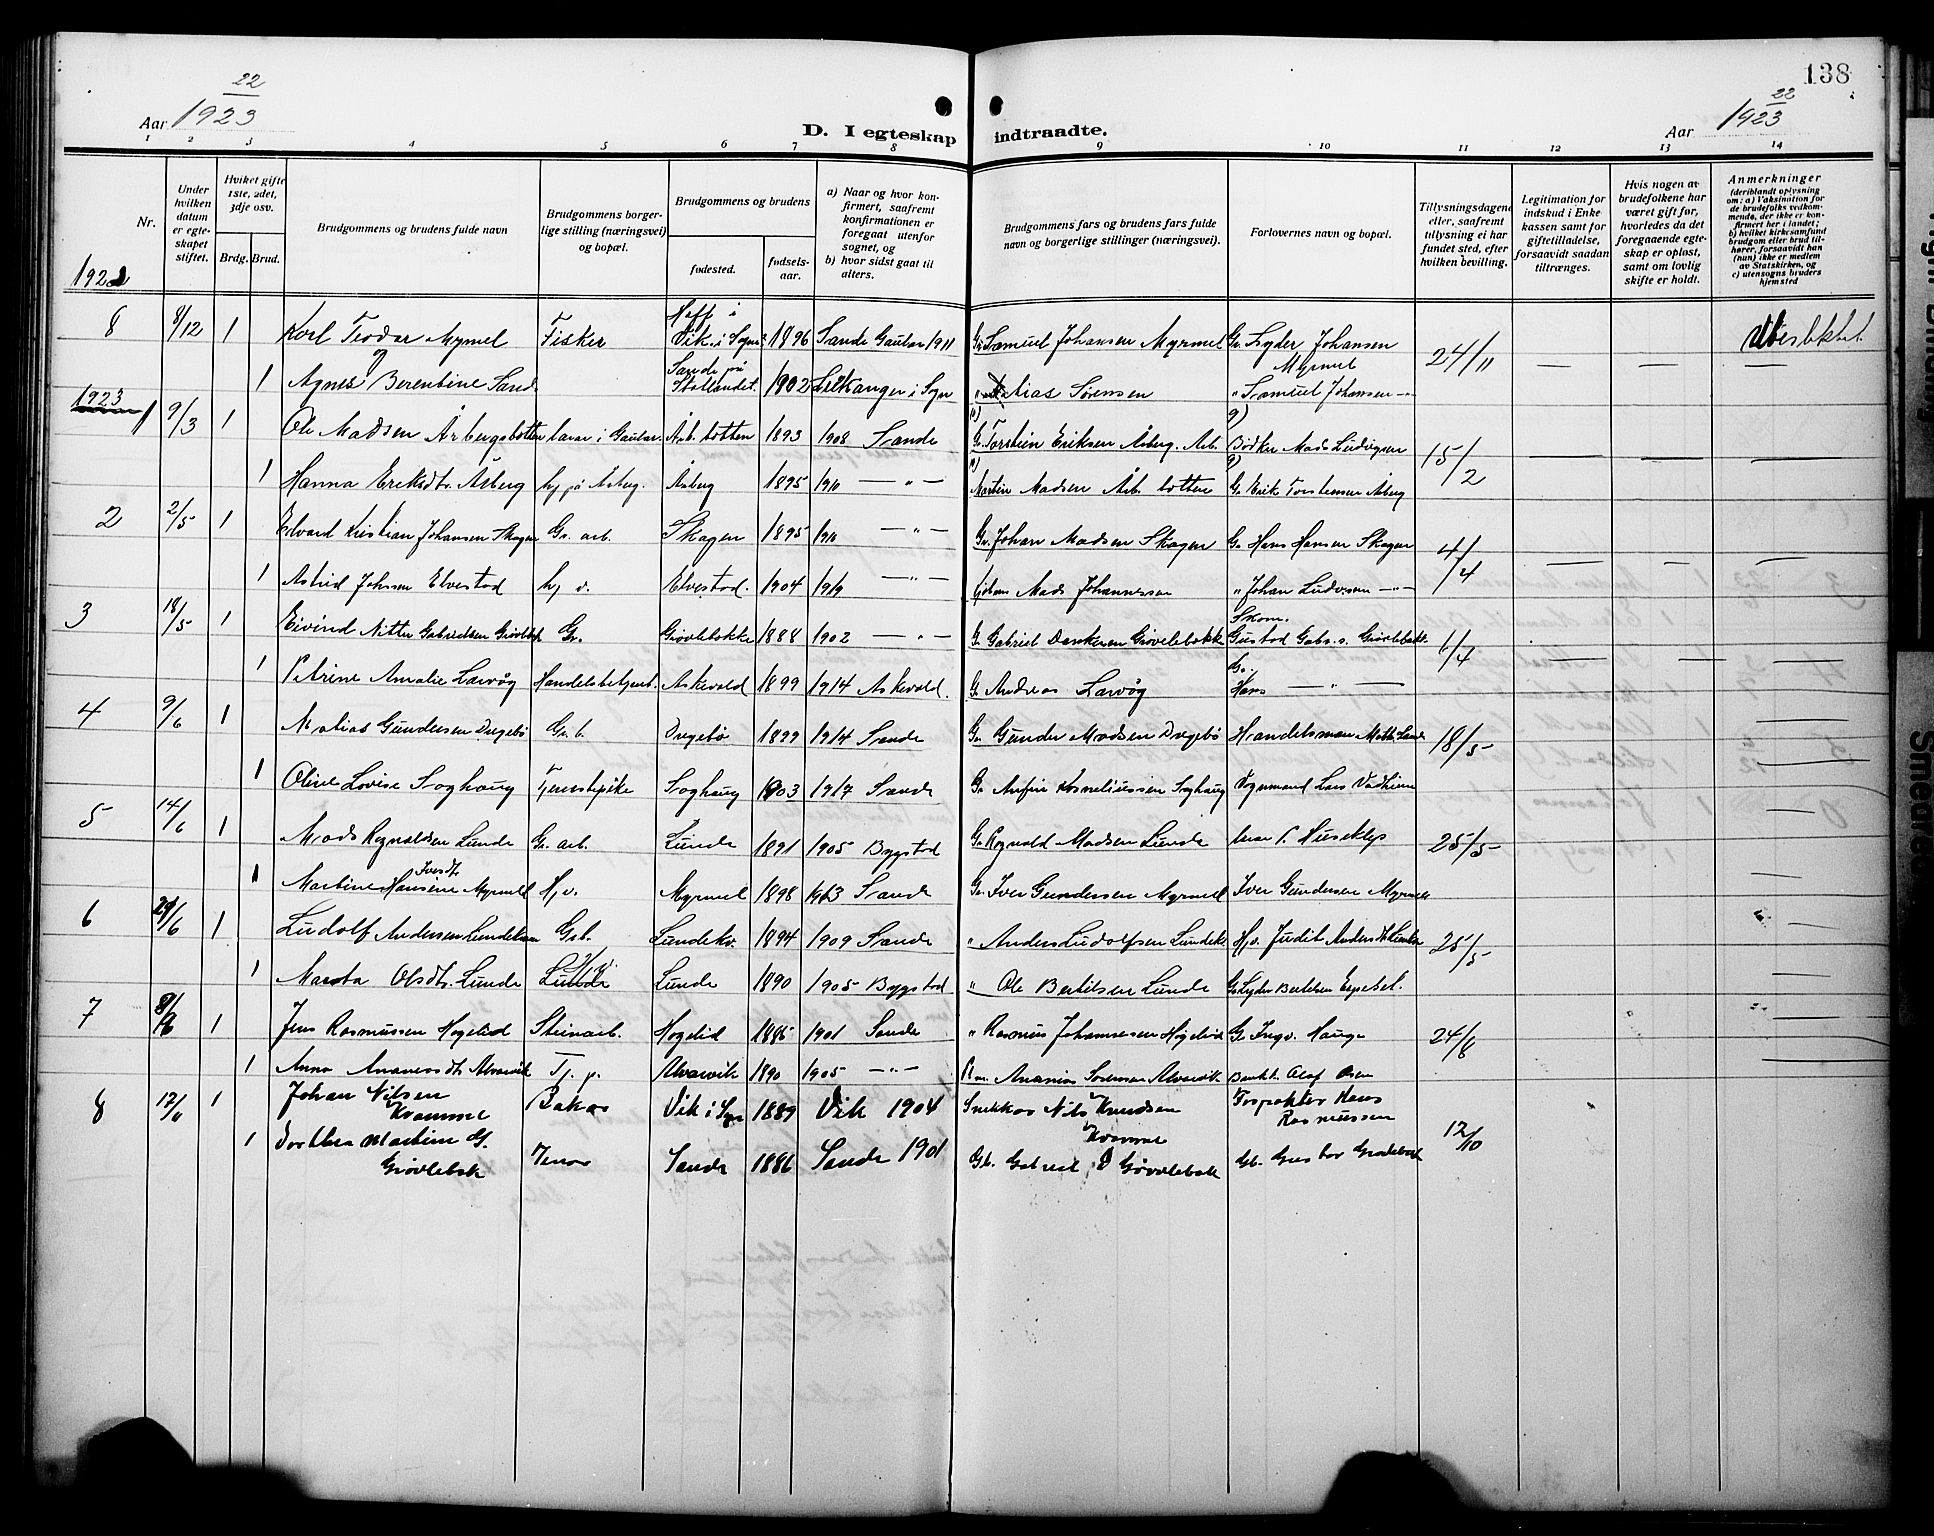 138
22
Aar 1923
D. I egteskap indtraadte.
22
Aar 1923
1 2 3 4 5 6 7 8 9 10 11 12 13 14
Nr.
Under hvilken datum er egteskapet stiftet.
Hviket gifte 1ste, 2det, 3dje osv.
Brdg. Brud.
Brudgommens og brudens fulde navn
Brudgommens borgerlige stilling (næringsvei) og bopæl.
Brudgommens og brudens
fødested.
fødselsaar.
a) Naar og hvor konfirmert, saafremt konfirmationen er foregaat utenfor sognet, og
b) hvor sidst gaat til alters.
Brudgommens fars og brudens fars fulde navn og borgerlige stillinger (næringsvei).
Forlovernes navn og bopæl.
Tillysningsdagene eller, saafremt tillysning ei har fundet sted, efter hvilken bevilling.
Legitimation for indskud i Enkekassen samt for giftetilladelse, forsaavidt saadan tiltrænges.
Hvis nogen av brudefolkene har været gift før, hvorledes da det foregaaende egteskap er opløst, samt om lovlig skifte er holdt.
Anmerkninger
(deriblandt oplysning om: a) Vaksination for de brudefolks vedkommende, der ikke er konfirmert her i landet; b) hvilket kirkesamfund brudgom eller brud tilhører, forsaavidt han (hun) ikke er medlem av Statskirken, og c) utensogns bruders hjemsted
1922
8 8/12 1 Karl Teodor Myrmel Fisker Hoff i Vik i Sogn 1896 Sande Gaular 1911 Gr. Samuel Johansen Myrmel Gr. Lyder Johansen Myrmel 24/11 — —
1 Agnes Berentine Sand Sande på Statlandet 1902 Leikanger i Sogn " Matias Sørensen " Samuel Johansen —"—
1923
1 9/3 1 Ole Madsen Årbergsbotten lærer i Gaular Årb. botten 1893 1908 Sande Gr. Torstein Eriksen Åsberg Bødker Mads Ludvigsen 15/2 — — —
1 Hanna Eriksdtr. Åsberg hj. på Åsberg. Åsberg 1895 1910 —"— Martin Madsen Årb. botten G. Erik Torstensen Åsberg
2 2/5 1 Edvard Kristian Johansen Skagen Gr. arb. Skagen 1895 1910 —"— Gr. Johan Madsen Skagen G. Hans Hansen Skagen 4/4 — — —
1 Astrid Johnsen Elvestad hj. v. Elvestad. 1904 1919 —"— Mads Johannessen " Johan Ludvsen —"—
3 18/5 1 Eivind Nitter Gabrielsen Grøvlebk Gr. Grøvlebakke 1888 1902 —"— G. Gabriel Dankersen Grøvlebakk Skom. Gustav Gabr. s. Grøvlebakk 6/4 — — —
1 Petrine Amalie Larvåg Handelsbetjent. Askevold 1899 1914 Askevold. G. Andreas Larvåg G. Hans —"—
4 9/6 1 Matias Gundersen Drægebø Gr. b. Drægebø 1899 1914 Sande Gr. Gunder Madsen Drægebø Handelsmann Matt. Sande 18/5 —
1 Oline Lovise Soghaug Tjenestepike Soghaug 1903 1917 Sande G. Anfin Korneliussen Soghaug Vognmand Lars Vadheim —
5 14/6 1 Mads Ragnvaldsen Lunde Gr. arb. Lunde 1891 1905 Bygstad G. Ragnvald Madsen Lunde lærer P. Huseklep 25/5 —
1 Martine Hansine Iversdt. Myrmel Hj. v. Myrmel 1898 1913 Sande G. Iver Gundersen Myrmel Iver Gundersen Myrmel —
6 29/6 1 Ludolf Andersen Lundekvam Gsb. Lundekv. 1894 1909 Sande " Anders Ludolfsen Lundekv. Hj. v. Judit Andersdtr. 25/5
1 Marta Olsdtr. Lunde Lunde Lunde 1890 1905 Bygstad " Ole Bertilsen Lunde G. Lyder Bertelsen Espeset. —
7 1 Jens Rasmussen Høgelid Steinarb. Høgelid 1885 1901 Sande " Rasmus Johannesen Høgelid G. Ingv. Hauge 24/8
1 Anna Ananiasdtr. Alvarvik Tj. p. Alvarvik 1890 1905 —"— Ananias Sørensen Alvarvik Olaf Osen —
8 12/11 1 Johan Nilsen Kvamme Baker Vik i Sogn 1889 Vik 1904 Snekker Nils Knudsen Kvamme Inspektør Hans Rasmussen 12/10
1 Dorthea Martine G. Grøvlebak Sande 1886 Sande 1901 Gb. Gabriel D Grøvlebak Gb. Gustav Grøvlebak